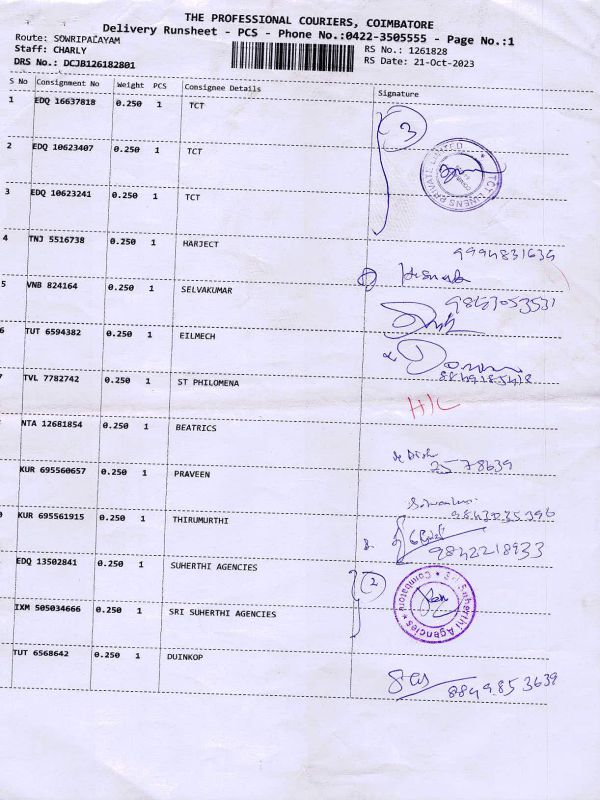 THE PROFESSIONAL COURIERS, COIMBATORE
Delivery Runsheet - PCS - Phone No.:0422-3505555 - Page No.:1
Route: SOWRIPALAYAM
RS No.: 1261828
Staff: CHARLY
RS Date: 21-Oct-2023
DRS No.: DCJB126182801
S No Consignment No Weight PCS Consignee Details Signature
1 EDQ 16637818 0.250 1 TCT
3
2 EDQ 10623407 0.250 1 TCT
TCT LINENS PRIVATE LIMITED
3 EDQ 10623241 0.250 1 TCT
4 TNJ 5516738 0.250 1 HARJECT
5 VNB 824164 0.250 1 SELVAKUMAR
6 TUT 6594382 0.250 1 EILMECH
7 TVL 7782742 0.250 1 ST PHILOMENA
H/C
NTA 12681854 0.250 1 BEATRICS
2578639
KUR 695560657 0.250 1 PRAVEEN
KUR 695561915 0.250 1 THIRUMURTHI
9842218933
EDQ 13502841 0.250 1 SUHERTHI AGENCIES
2
Sri Suherthi Agencies
Coimbatore
IXM 505034666 0.250 1 SRI SUHERTHI AGENCIES
TUT 6568642 0.250 1 DUINKOP
8849853639